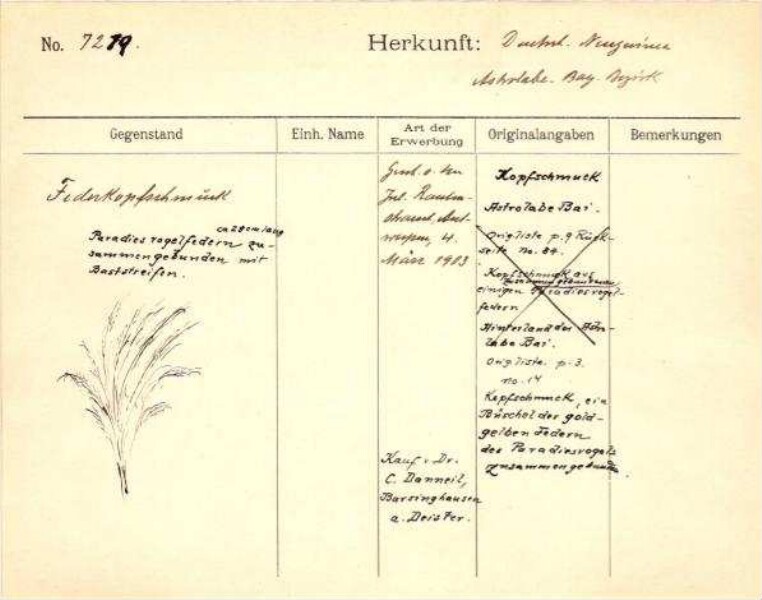 No. 7219.
Herkunft: Deutsch. Neuguinea
Astrolabe-Bay-Bezirk
Gegenstand
Einh. Name
Art der
Erwerbung
Originalangaben
Bemerkungen
Federkopfschmuck
ca 28 cm lang
Paradiesvogelfedern zu-
sammengebunden mit
Baststreifen.
Jul.
werpen, 4.
März 1903
Kauf v. Dr.
C. Danneil,
Barsinghausen
a. Deister.
Kopfschmuck
Astrolabe Bai.
Origliste p. 9 Rück-
seite No. 84.
Kopfschmuck aus
zusammengebundenen
einigen Paradiesvogel-
federn
Hinterland der Astro-
labe Bai.
Origliste. p. 3.
no. 14
Kopfschmuck, ein
Büschel der gold-
gelben Federn
des Paradiesvogels
zusammengebunden